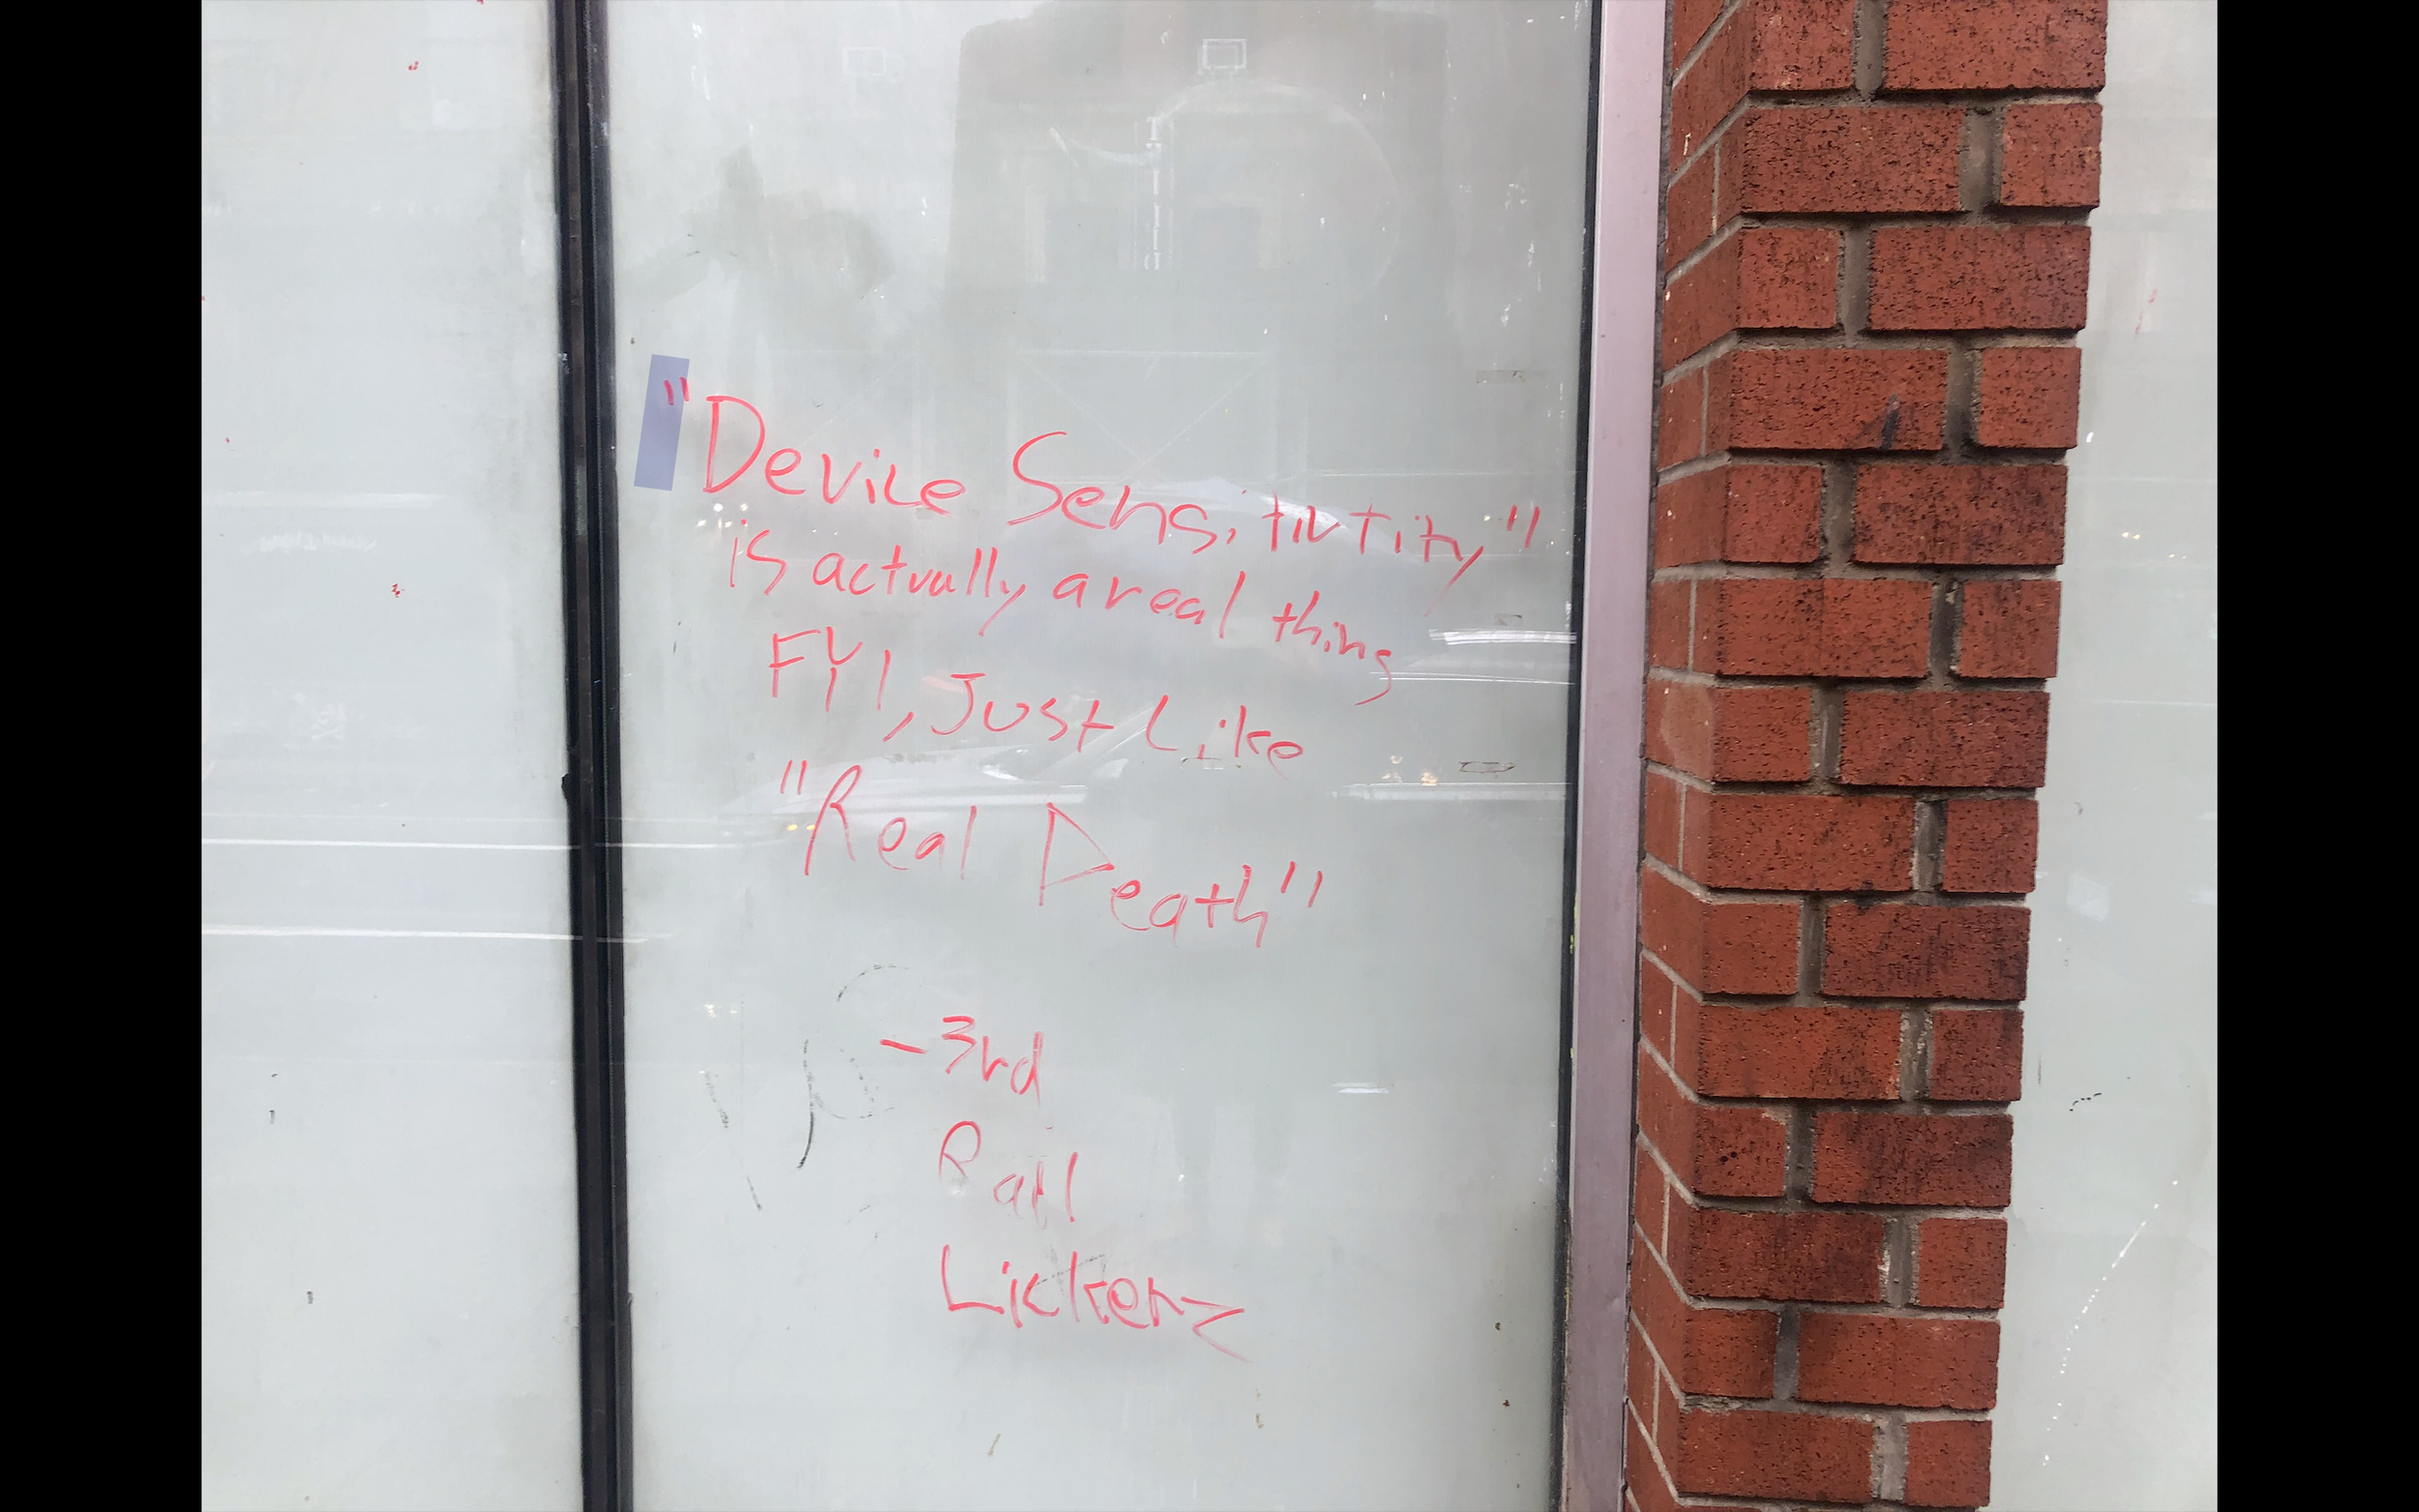 "Device Sensitivtity"
is actually a real thing
FYI, Just Like
"Real Death"
-3rd
Rail
Lickerz